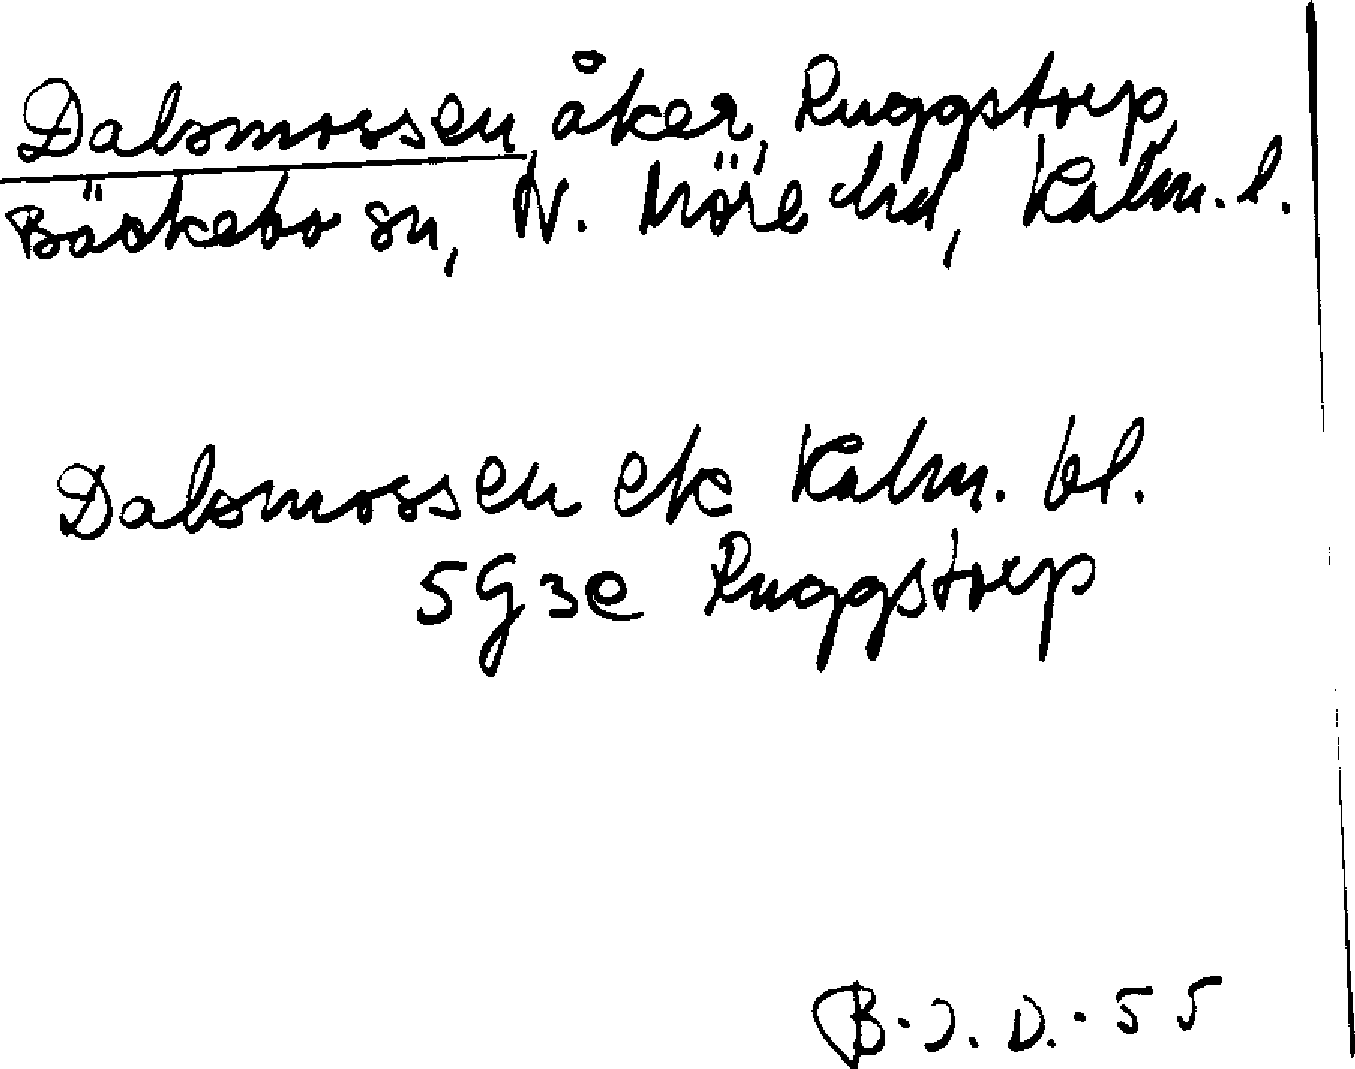 Dalsmossen, åker, Ruggstorp,
Bäckebo sn, N. Möre hd, Kalm. l.
Dalsmossen ek Kalm. bl.
5G3e Ruggstorp
B. J. D. - 55